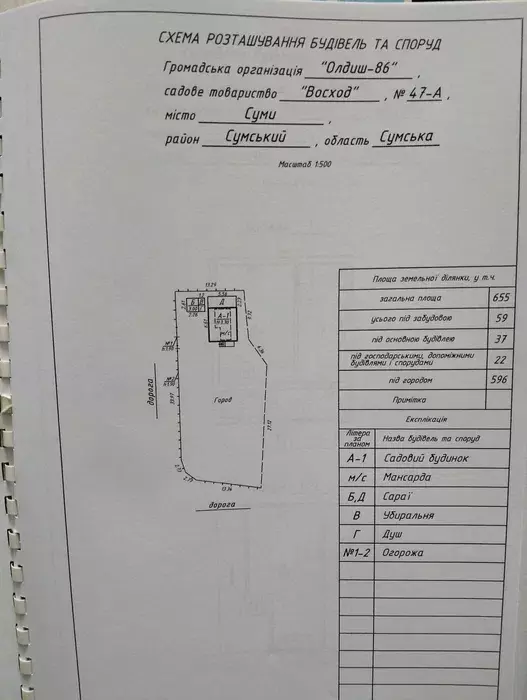 СХЕМА РОЗТАШУВАННЯ БУДІВЕЛЬ ТА СПОРУД
Громадська організація "Олдиш-86" ,
садове товариство "Восход" , № 47-А ,
місто Суми ,
район Сумський , область Сумська
Масштаб 1:500
13.29
Д
Б В
Г
А-1
м/с
8.12
6.36
21.12
Город
дорога
13.36
дорога
Площа земельної ділянки, у т.ч.
загальна площа 655
усього під забудовою 59
під основною будівлею 37
під господарськими, допоміжними будівлями і спорудами 22
під городом 596
Примітка
Експлікація
Літера за планом Назва будівель та споруд
А-1 Садовий будинок
м/с Мансарда
Б,Д Сараї
В Убиральня
Г Душ
№1-2 Огорожа